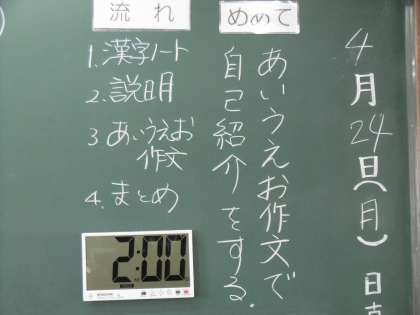 4月24日(月)
めあて
あいうえお作文で
自己紹介をする.
流れ
1.漢字ノート
2.説明
3あいうえお
作文
4.まとめ
2:00